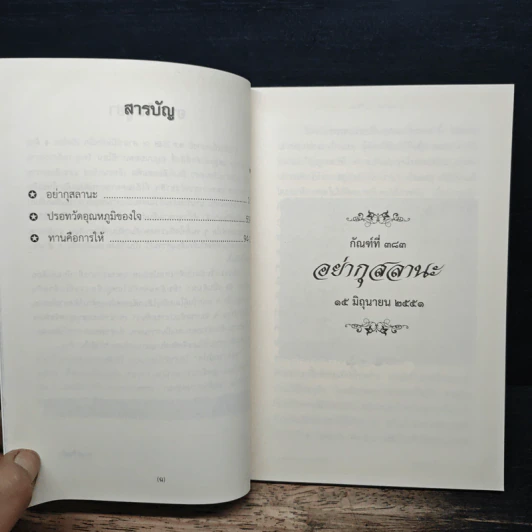 สารบัญ
อย่ากุสลานะ
ปรอทวัดอุณหภูมิของใจ
ทานคือการให้
กัณฑ์ที่ ๓๘๓
อย่ากุสลานะ
๑๕ มิถุนายน ๒๕๕๑